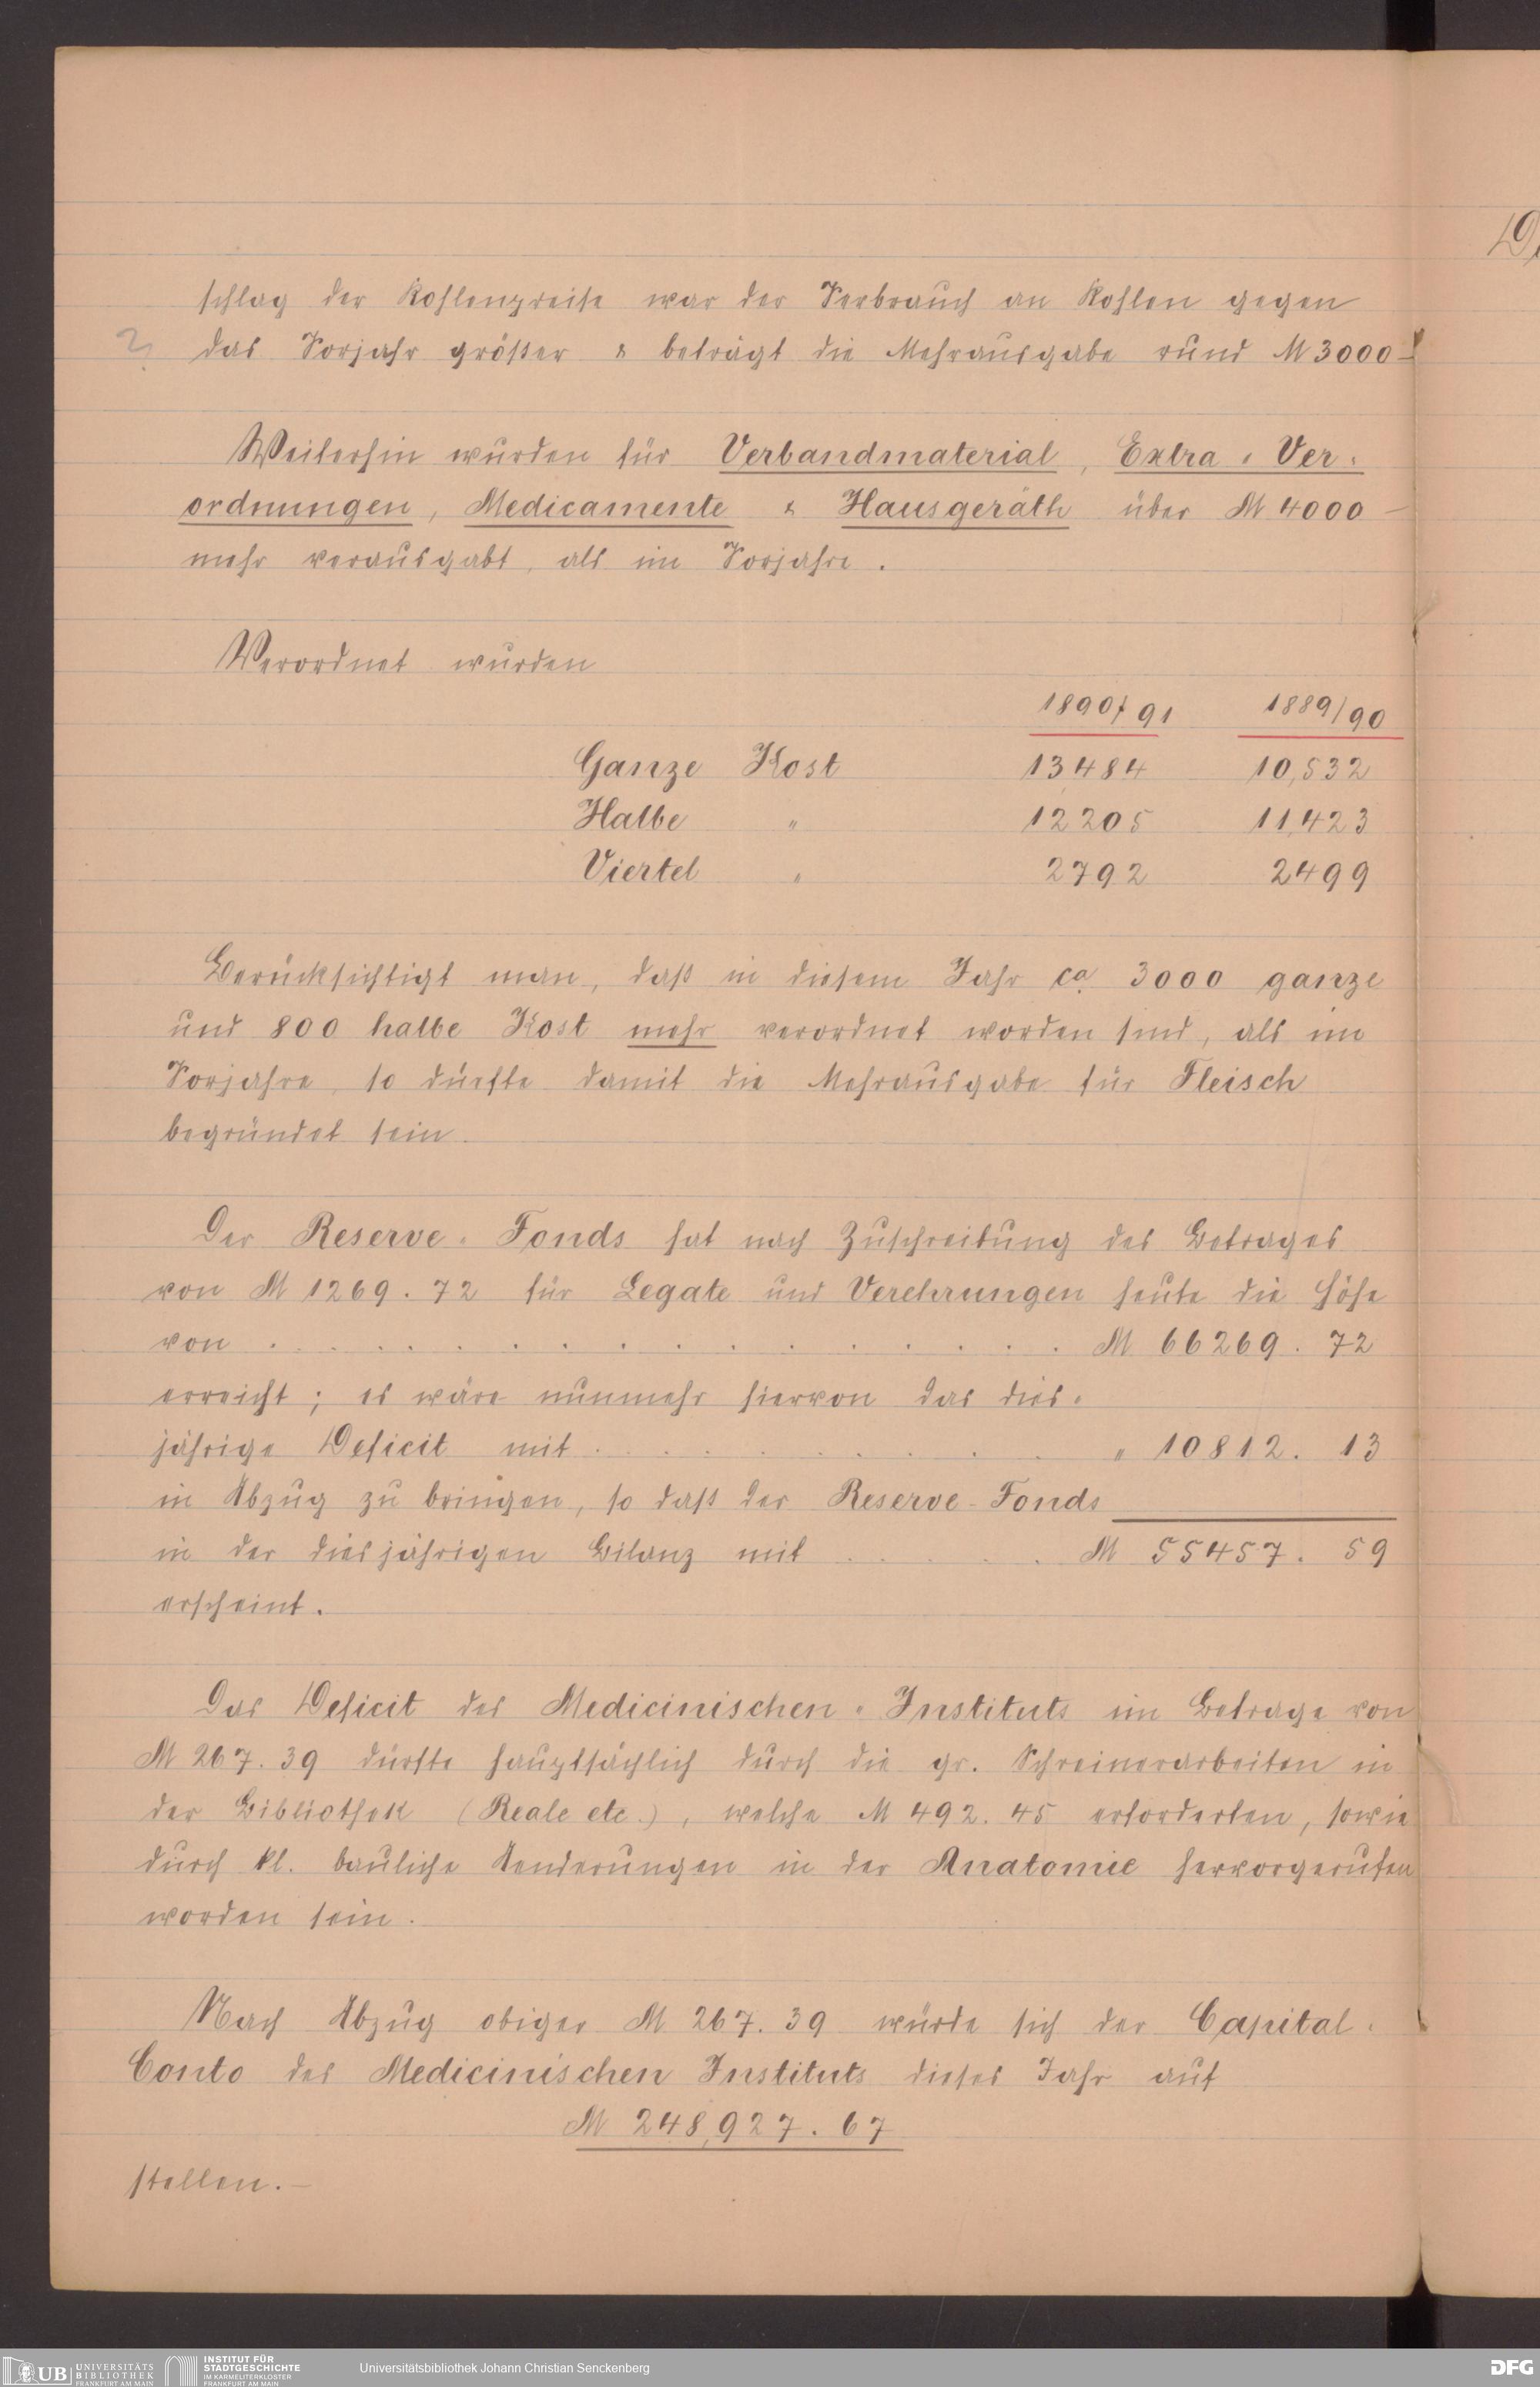 schlag der Kohlenpreise war der Verbrauch an Kohlen gegen
? das Vorjahr größer & beträgt die Mehrausgabe rund M 3000 –
Weiterhin wurden für Verbandmaterial, Extra-Ver-
ordnungen, Medicamente & Hausgeräth über M 4000 –
mehr verausgabt, als im Vorjahre.
Verordnet wurden
1890/91 1889/90
Ganze Kost 13,484 10,532
Halbe " 12205 11,423
Viertel " 2792 2499
Berücksichtigt man, daß in diesem Jahr ca 3000 ganze
und 800 halbe Kost mehr verordnet worden sind, als im
Vorjahre, so dürfte damit die Mehrausgabe für Fleisch
begründet sein.
Der Reserve-Fonds hat nach Zuschreibung des Betrages
von M 1269.72 für Legate und Verehrungen heute die Höhe
von . . . . . . . . . . . . . . . M 66269.72
erreicht; es wäre nunmehr hiervon das dies-
jährige Deficit mit . . . . . . . . . " 10812.13
in Abzug zu bringen, so daß der Reserve-Fonds
in der diesjährigen Bilanz mit . . . . . M 55457.59
erscheint.
Das Deficit des Medicinischen-Instituts im Betrage von
M 267.39 dürfte hauptsächlich durch die gr. Schreinerarbeiten in
der Bibliothek (Reale etc.), welche M 492.45 erforderten, sowie
durch kl. bauliche Aenderungen in der Anatomie hervorgerufen
worden sein.
Nach Abzug obiger M 267.39 würde sich der Capital-
Conto des Medicinischen Instituts dieses Jahr auf
M 248,927.67
stellen.–
UB UNIVERSITÄTS
BIBLIOTHEK
FRANKFURT AM MAIN
INSTITUT FÜR
STADTGESCHICHTE
IM KARMELITERKLOSTER
FRANKFURT AM MAIN
Universitätsbibliothek Johann Christian Senckenberg
DFG